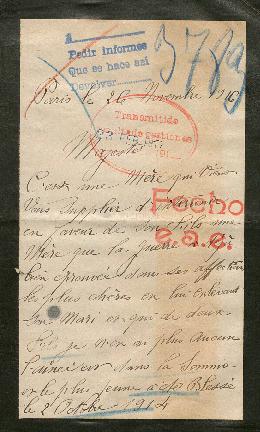 A
Pedir informes
Que se hace así
Devolver
3789
Paris le 26 Novembre 191
Transmitido
gestiones
Majesté
C'est une Mère qui vient
Vous supplier d'
en faveur de son fils une
Mère que la guerre a
bien éprouvée dans ses affections
les plus chères en lui enlevant
son Mari en qui de deux
Fils je n'en ai plus aucun
dans la Somme
et le plus jeune Blessé
le 2 Octobre 1914
Fecho
e.a.e.